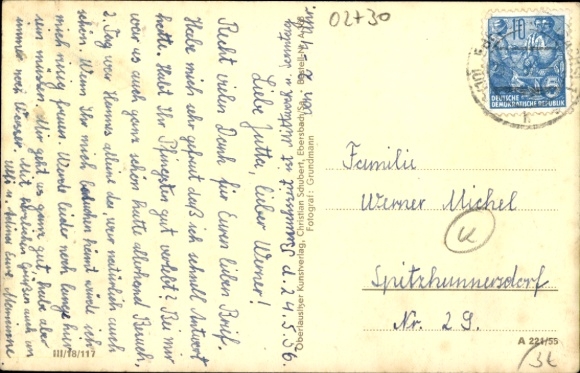 02+30
Baumwint d. 24.5.56.
Liebe Jutta, lieber Werner!
Recht vielen Dank für Euren lieben Brief.
Habe mich sehr gefreut daß ich schnell Antwort
hatte. Habt Ihr Pfingsten gut verlebt? Bei mir
war es auch ganz schön hatte allerhand Besuch,
2. Tag war Hannes alleine da, war natürlich auch
schön. Wenn Ihr mich besuchen kämt würde ich
mich riesig freuen. Werde leider noch lange hier
sein müssen. Mir geht es ganz gut, habe aber
immer noch Wasser. Mit herzlichen Grüßen auch an
u. Eure
III/18/117
Bestell-Nr.
Oberlausitzer Kunstverlag, Christian Schubert, Ebersbach/Sa.
Fotograf: Grundmann
10
5
DEUTSCHE
DEMOKRATISCHE REPUBLIK
Familie
Werner Michel
K
Spitzkunnersdorf
Nr. 29.
A 221/55